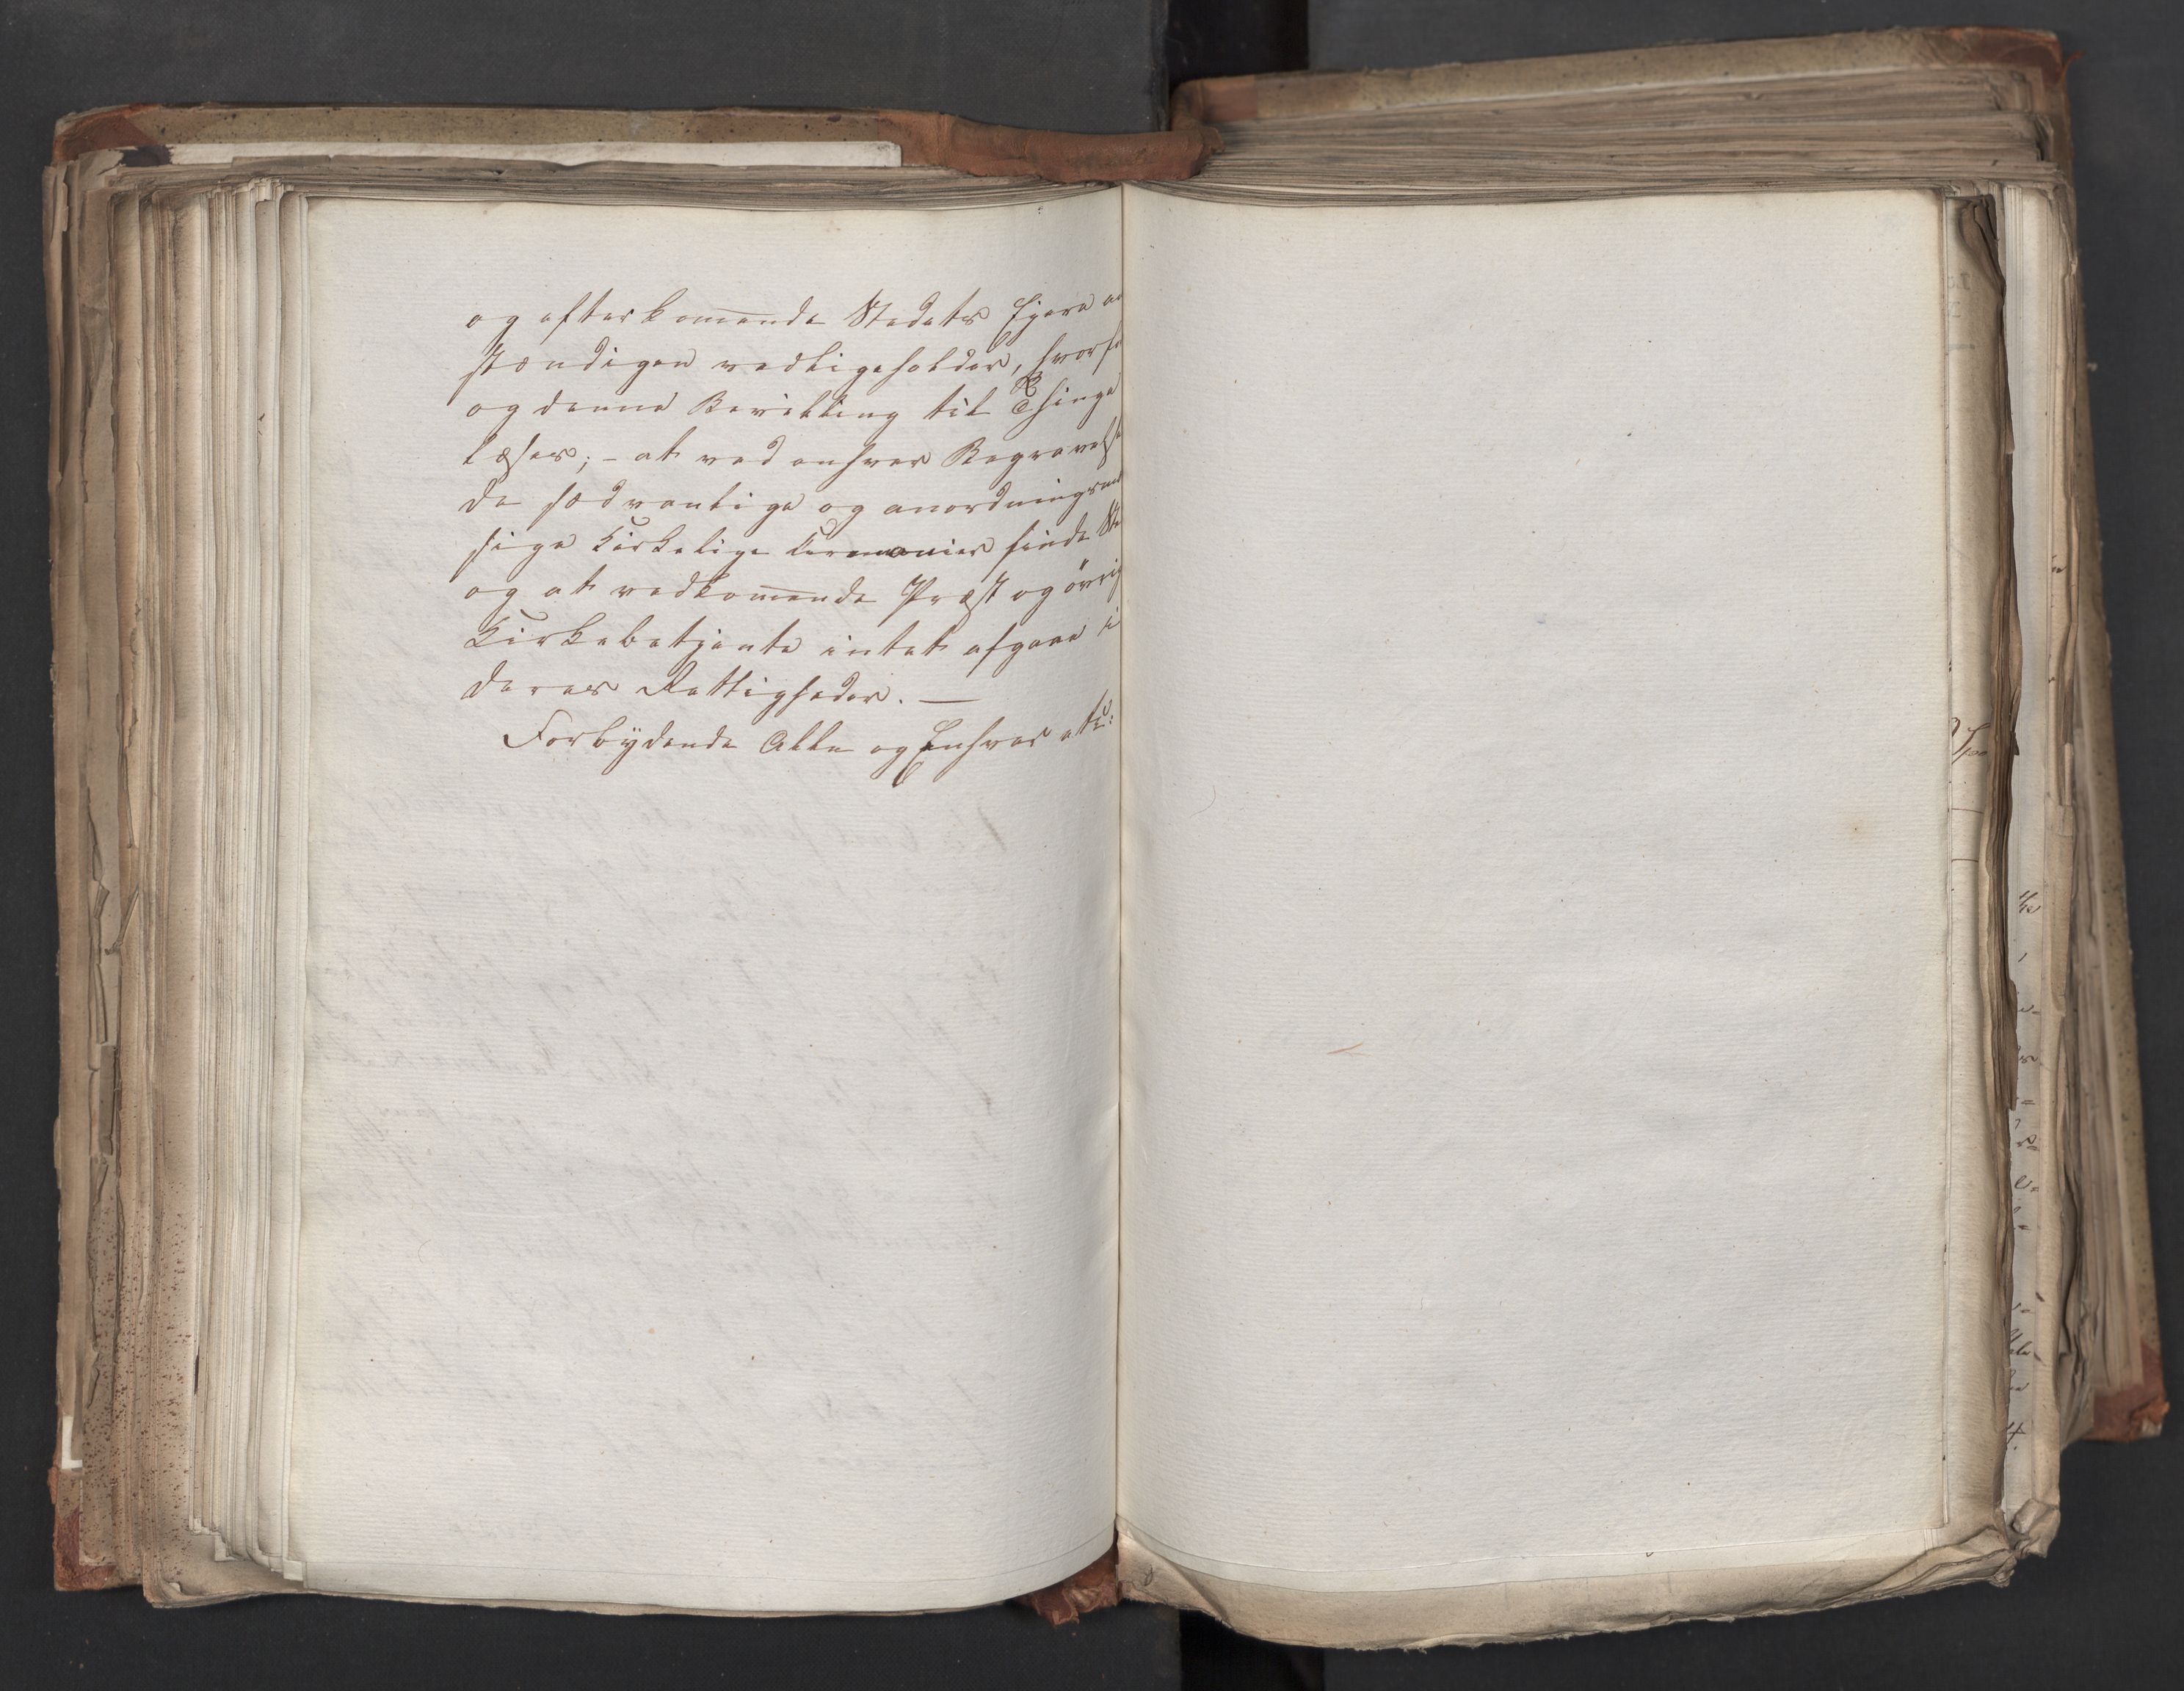 og efterkommende Stedets Ejere
stændigen vedligeholder, hvorfo
og denne Bevilling til Thinge
læses; - at ved enhver Begravelse
de sædvanlige og anordningsmæs
sige Kirkelige Ceremonier finde Ste
og at vedkommende Præst og øvrig
Kirkebetjente intet afgaae i
deres Rettigheder. —
Forbydende Alle og Enhver etc: